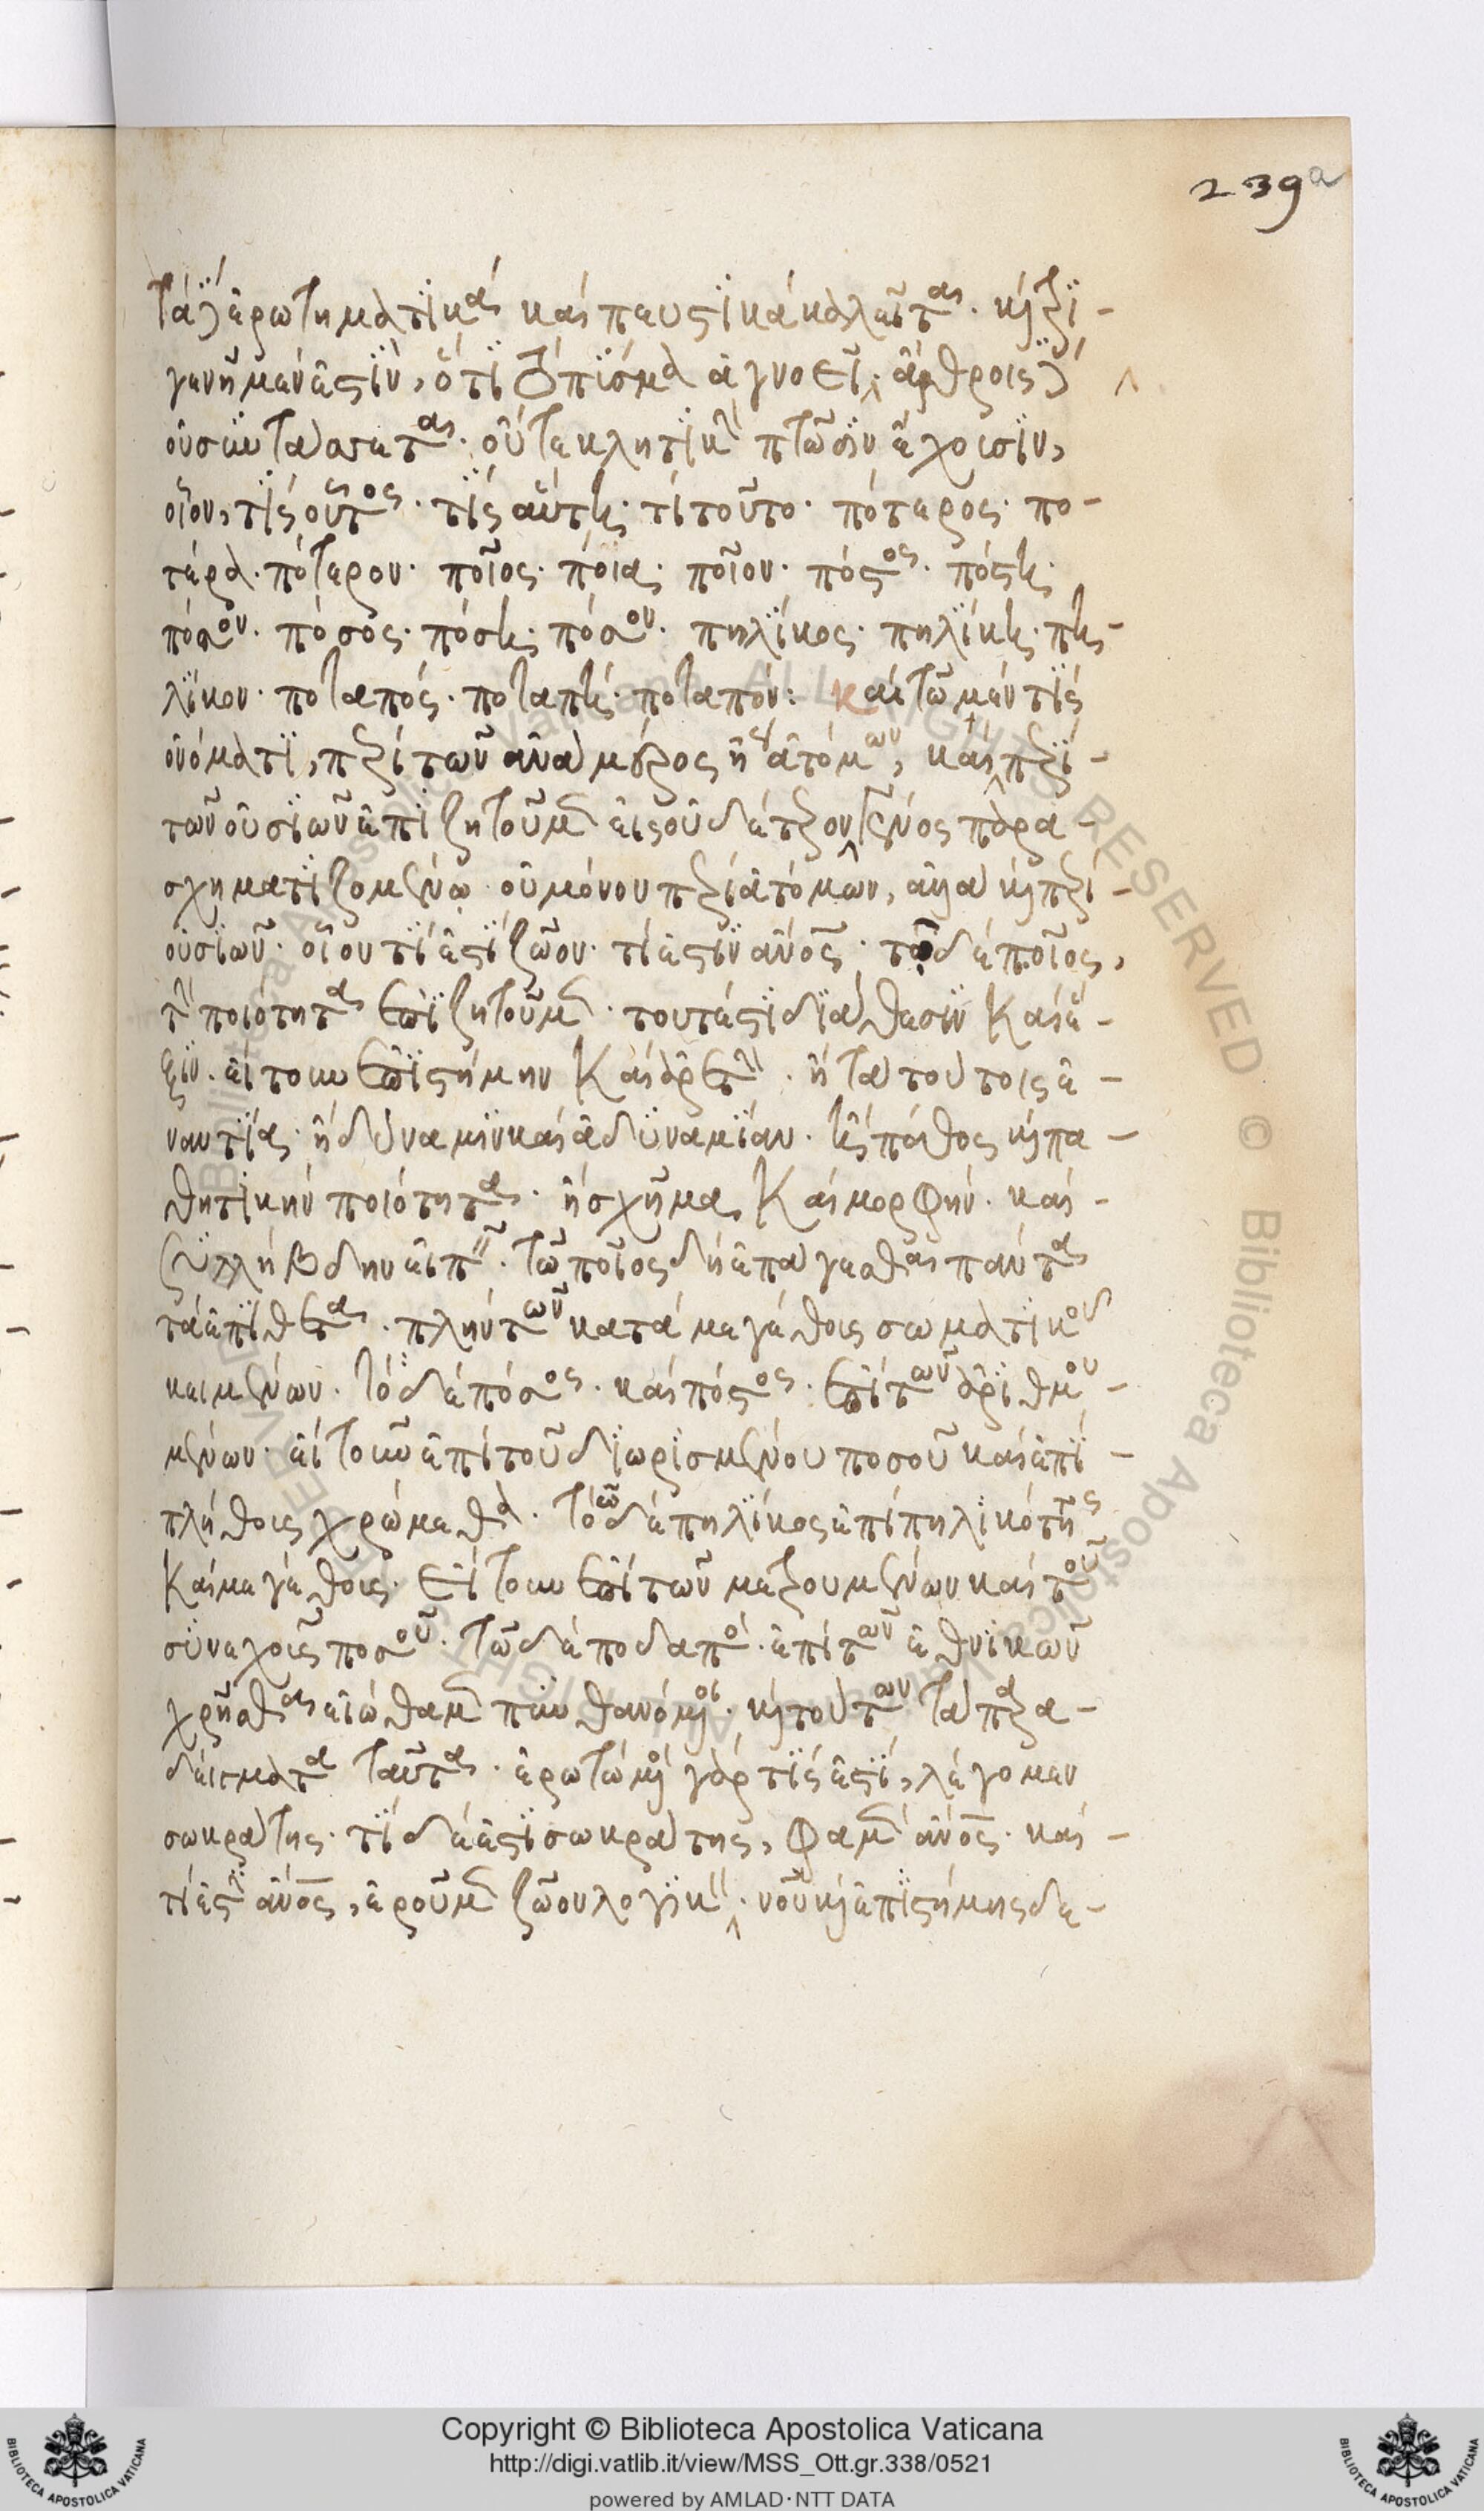 239a
τὰ δὲ ἐρωτηματικὰ καὶ πευστικὰ καλεῖται. καὶ περι-
γενῆ μέν ἐστιν, ὅτι τὸ ἐπίσημα ἀγνοεῖ, ἄρθροις δὲ
οὐ συντάσσεται. οὔτε κλητικὴν πτῶσιν ἔχουσιν,
οἷον, τίς οὗτος. τίς αὕτη. τί τοῦτο. πότερος. πο-
τέρα. πότερον. ποῖος. ποία. ποῖον. πόστος. πόστη.
πόστον. πόσος. πόση. πόσον. πηλίκος. πηλίκη. πη-
λίκον. ποταπός. ποταπή. ποταπόν: καὶ τῷ μὲν τίς
ὀνόματι, περὶ τῶν ἀνὰ μέρος ἢ ἀτόμων, καὶ περὶ
τῶν οὐσιῶν ἐπιζητοῦμεν εἰς οὐδέτερον γένος παρα-
σχηματιζομένῳ. οὐ μόνον περὶ ἀτόμων, ἀλλὰ καὶ περὶ
οὐσιῶν. οἷον τί ἐστι ζῶον. τί ἐστιν ἄνος. τῷ δὲ ποῖος,
τὴν ποιότητα ἐπιζητοῦμεν. τουτέστι διάθεσιν καὶ ἕ-
ξιν. εἴτουν ἐπιστήμην καὶ ἀρετήν. ἢ τὰ τούτοις ἐ-
ναντία. ἢ δύναμιν καὶ ἀδυναμίαν. ἢ πάθος καὶ πα-
θητικὴν ποιότητα. ἢ σχῆμα, καὶ μορφήν. καὶ
συλλήβδην εἰπεῖν. τῷ ποῖος δὴ ἐπάγεσθαι πάντα
τὰ ἐπίθετα. πλὴν τῶν κατὰ μεγέθους σωματικοῦ
κειμένων. τὸ δὲ πόσος. καὶ πόστος. ἐπὶ τῶν ἀριθμου-
μένων. εἴτουν ἐπὶ τοῦ διωρισμένου ποσοῦ καὶ ἐπὶ
πλήθους χρώμεθα. τῷ δὲ πηλίκος ἐπὶ πηλικότητος
καὶ μεγέθους. εἴτουν ἐπὶ τῶν μετρουμένων καὶ τοῦ
συνεχοῦς ποσοῦ. τῷ δὲ ποδαπὸ. ἐπὶ τῶν ἐθνικῶν
χρῆσθαι εἰώθαμεν πυνθανόμενοι. καὶ τούτων τὰ παρα-
δείγματα ταῦτα. ἐρωτώμενοι γὰρ τίς ἐστι, λέγομεν
σωκράτης. τί δέ ἐστι σωκράτης, φαμὲν ἄνος. καὶ
τί ἐστιν ἄνος, ἐροῦμεν ζῶον λογικὸν. νοῦ καὶ ἐπιστήμης δε-
Copyright © Biblioteca Apostolica Vaticana
http://digi.vatlib.it/view/MSS_Ott.gr.338/0521
powered by AMLAD·NTT DATA